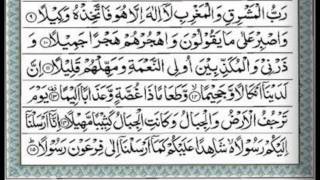 رَبُّ الْمَشْرِقِ وَالْمَغْرِبِ لَآ اِلٰهَ اِلَّا هُوَ فَاتَّخِذْهُ وَكِيْلًا ۹
وَاصْبِرْ عَلٰى مَا يَقُوْلُوْنَ وَاهْجُرْهُمْ هَجْرًا جَمِيْلًا ۱۰
وَ ذَرْنِيْ وَالْمُكَذِّبِيْنَ اُولِي النَّعْمَةِ وَمَهِّلْهُمْ قَلِيْلًا ۱۱ اِنَّ
لَدَيْنَآ اَنْكَالًا وَّجَحِيْمًا ۱۲ وَّطَعَامًا ذَا غُصَّةٍ وَّعَذَابًا اَلِيْمًا ۱۳ يَوْمَ
تَرْجُفُ الْاَرْضُ وَالْجِبَالُ وَكَانَتِ الْجِبَالُ كَثِيْبًا مَّهِيْلًا ۱۴ اِنَّآ اَرْسَلْنَآ
اِلَيْكُمْ رَسُوْلًا شَاهِدًا عَلَيْكُمْ كَمَآ اَرْسَلْنَآ اِلٰى فِرْعَوْنَ رَسُوْلًا ۱۵